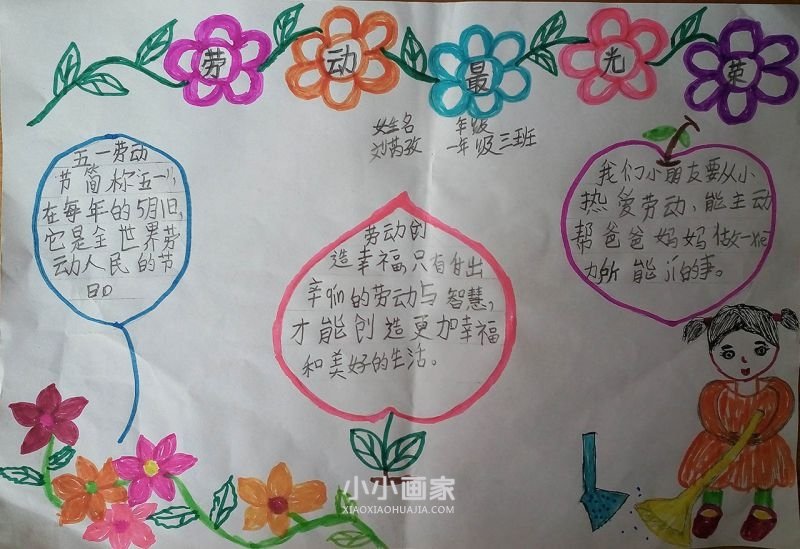 劳动最光荣
姓名 年级
一年级三班
五一劳动
节简称五一,
在每年的5月1日,
它是全世界劳
动人民的节
日
劳动创
造幸福,只有付出
辛qin的劳动与智慧,
才能创造更加幸福
和美好的生活。
我们小朋友要从小
热爱劳动、能主动
帮爸爸妈妈做一些
力所能jí的事。
小小画家
XIAOXIAOHUAJIA.COM